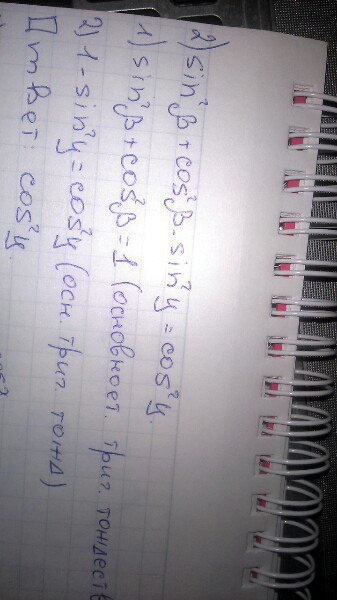 2) sin²β + cos²β - sin²y = cos²y.
1) sin²β + cos²β = 1 (основноет. триг. тождеств
2) 1 - sin²y = cos²y (осн. триг. тожд)
Ответ: cos²y.